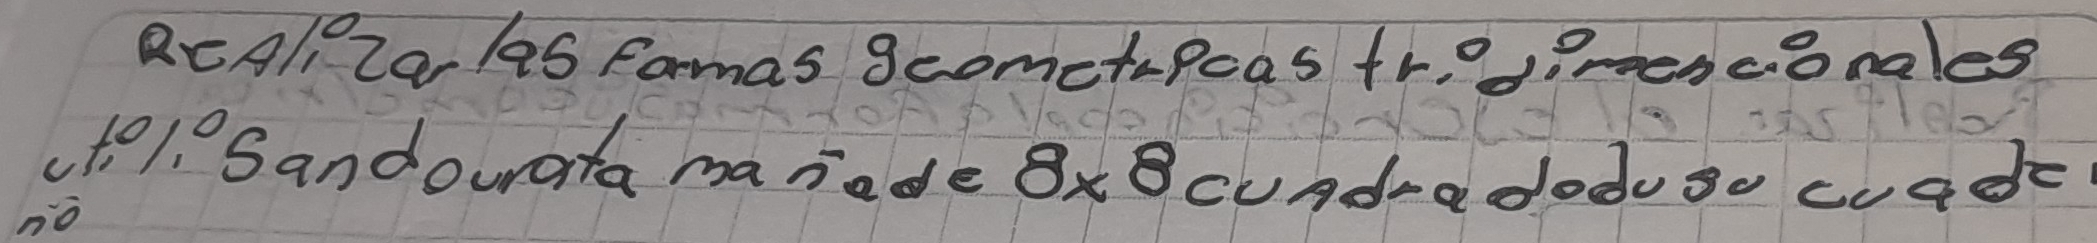 Realizar las formas geometricas tridimencionales
utilisando urata mañade 8x8 cuadradodu su cuade
no